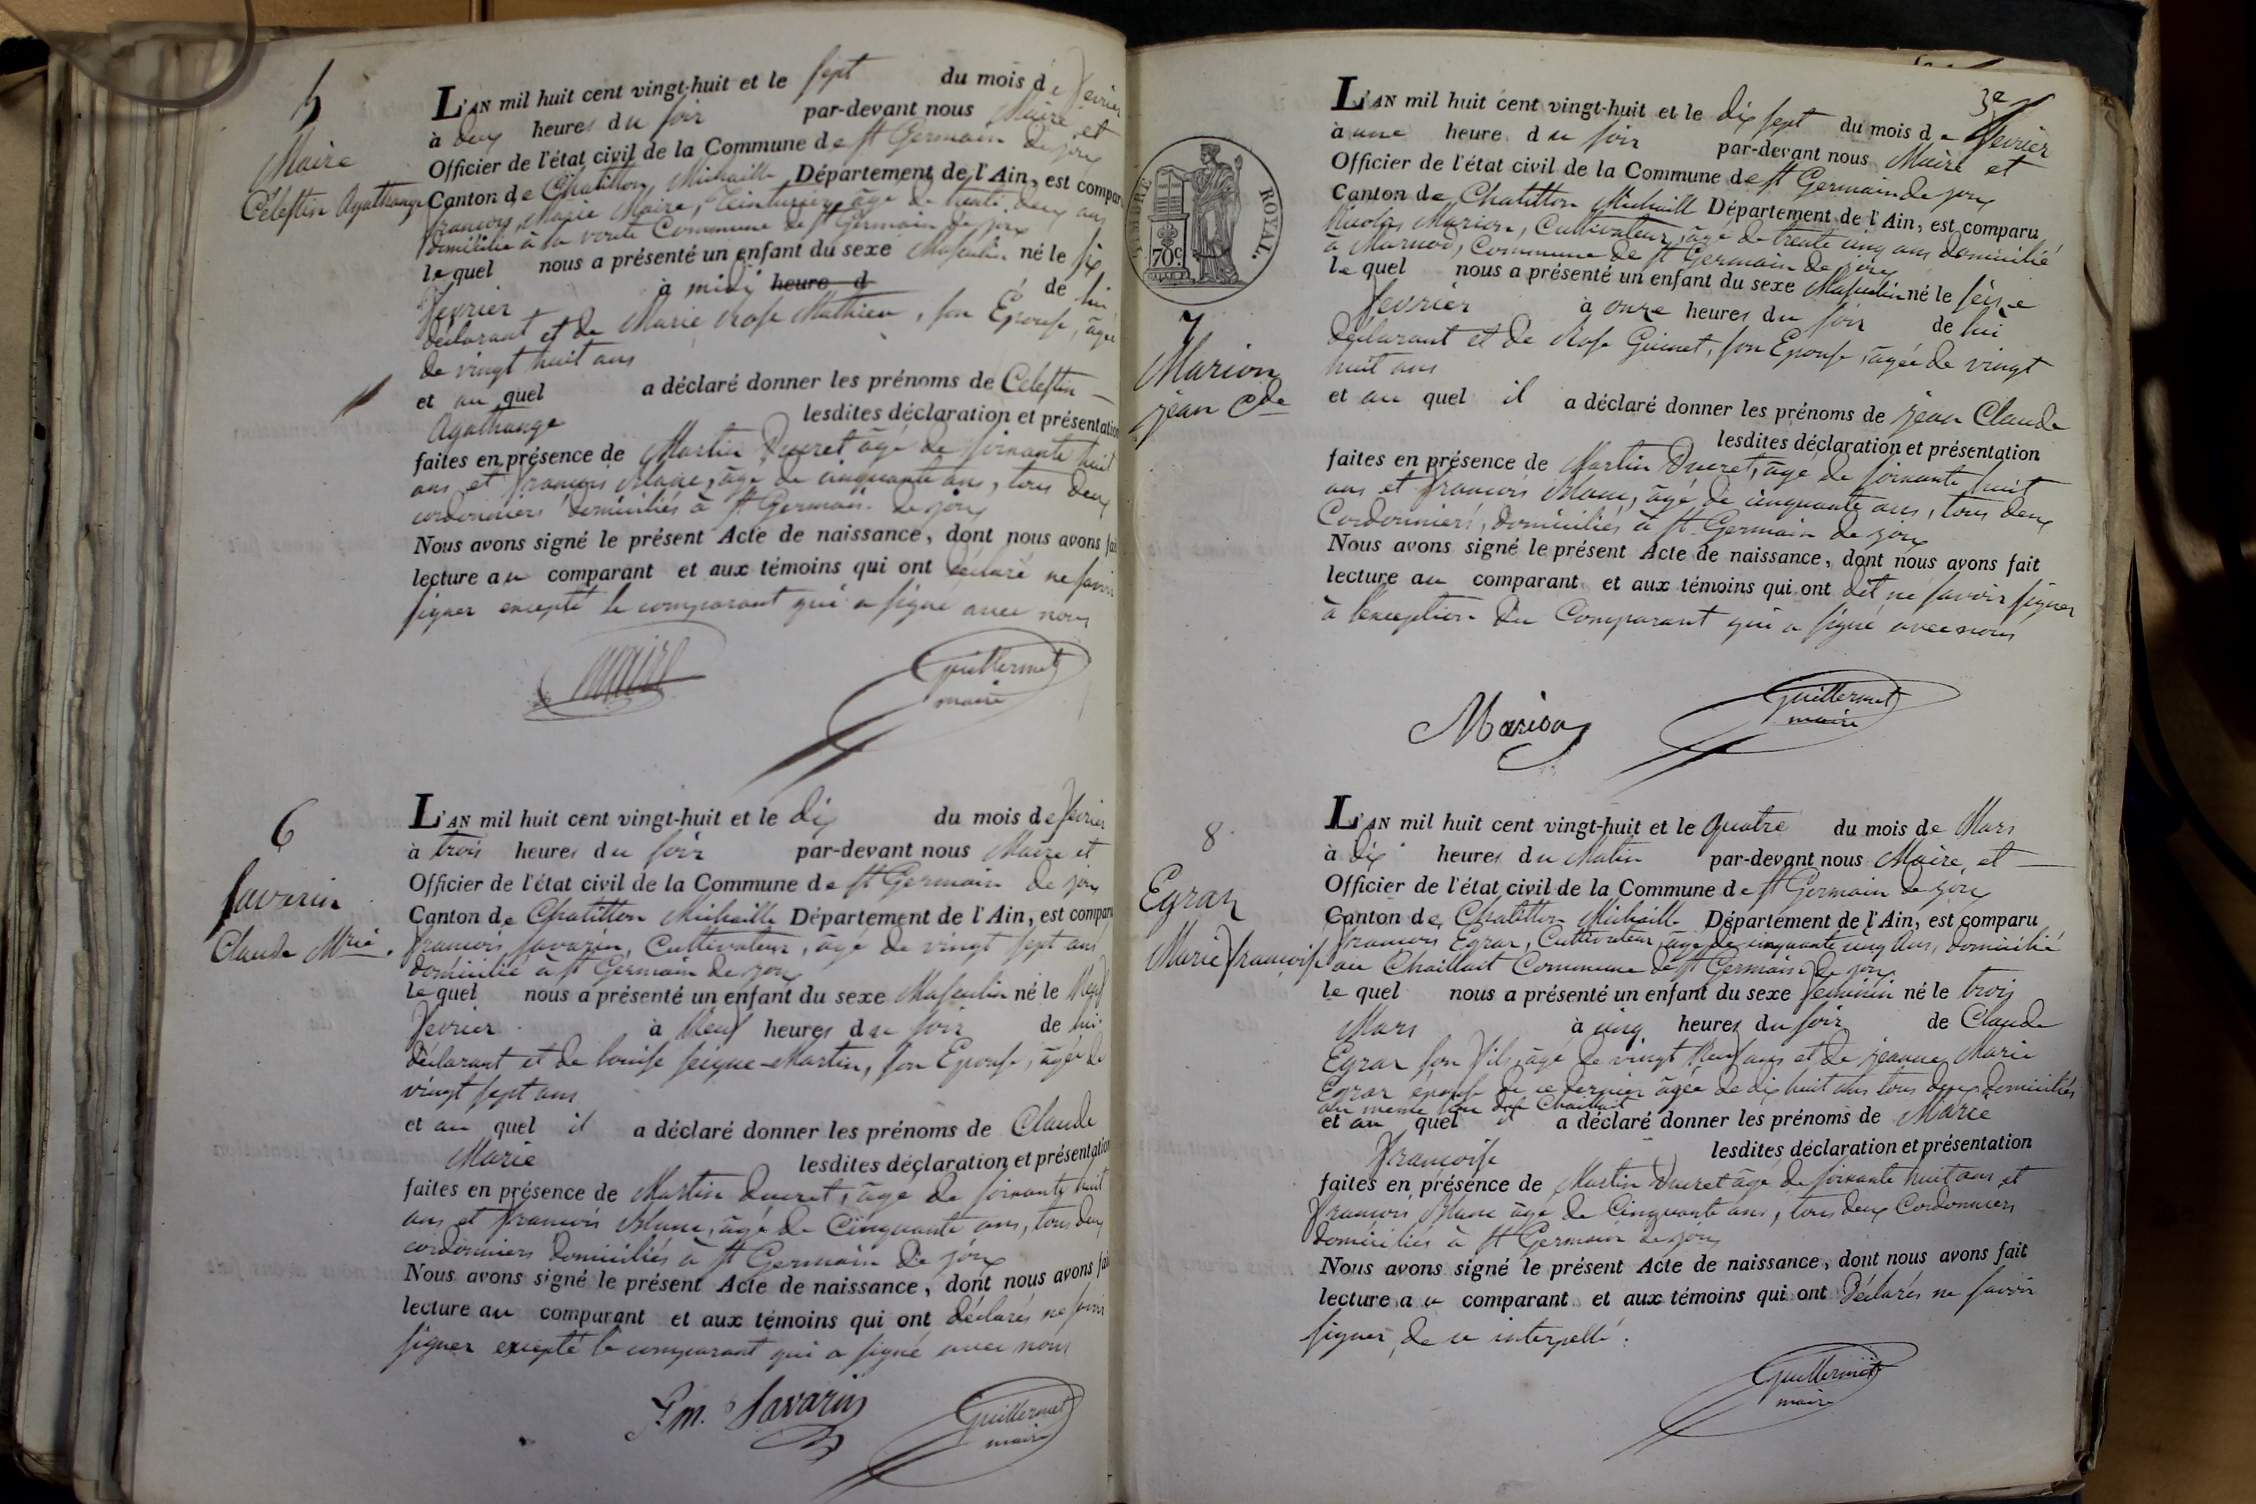 5
Maire
Celestin Agathange
L'AN mil huit cent vingt-huit et le sept du mois de fevrier
à deux heures du soir par-devant nous Maire et
Officier de l'état civil de la Commune de St Germain de joux
Canton de Chatillon Michaille Département de l'Ain, est compar
françois Marie Maire, Teinturier, âgé de trente deux ans
domicilié à la voute Commune de St Germain de joux
lequel nous a présenté un enfant du sexe Masculin né le six
fevrier à midi heure d de lui
déclarant et de Marie Rose Mathieu, son Epouse, âgée
de vingt huit ans
et au quel a déclaré donner les prénoms de Celestin
Agathange lesdites déclaration et présentation
faites en présence de Martin Ducret âgé de soixante huit
ans et françois Blanc, âgé de cinquante ans, tous deux
cordonniers domiciliés à St Germain de joux
Nous avons signé le présent Acte de naissance, dont nous avons fai
lecture au comparant et aux témoins qui ont déclaré ne savoir
signer excepté le comparant qui a signé avec nous
Maire
Guillermet
maire
6
Savarin
Claude Mrie.
L'AN mil huit cent vingt-huit et le dix du mois de fevrier
à trois heures du soir par-devant nous Maire et
Officier de l'état civil de la Commune de St Germain de joux
Canton de Chatillon Michaille Département de l'Ain, est comparu
françois Savarin, Cultivateur, âgé de vingt sept ans
domicilié à St Germain de joux
lequel nous a présenté un enfant du sexe Masculin né le Neuf
fevrier à Neuf heures du soir de lui
déclarant et de louise Martin, son Epouse, âgée de
vingt sept ans
et au quel il a déclaré donner les prénoms de Claude
Marie lesdites déclaration et présentation
faites en présence de Martin ducret, âgé de soixante huit
ans et françois Blanc, âgé de Cinquante ans, tous deux
cordonniers domiciliés à St Germain de joux
Nous avons signé le présent Acte de naissance, dont nous avons fai
lecture au comparant et aux témoins qui ont déclarés ne savoir
signer excepté le comparant qui a signé avec nous
f.m. Savarin
Guillermet
maire
3e
TIMBRE ROYAL.
70c.
7
Marion
jean Cde
L'AN mil huit cent vingt-huit et le dix sept du mois de fevrier
à une heure du soir par-devant nous Maire et
Officier de l'état civil de la Commune de St Germain de joux
Canton de Chatillon Michaille Département de l'Ain, est comparu
Nicolas Marion, Cultivateur, âgé de trente cinq ans domicilié
à Marnod, Commune de St Germain de joux
lequel nous a présenté un enfant du sexe Masculin né le seize
fevrier à onze heures du soir de lui
déclarant et de Rose Guinet, son Epouse, âgée de vingt
huit ans
et au quel il a déclaré donner les prénoms de jean Claude
lesdites déclaration et présentation
faites en présence de Martin Ducret, âgé de soixante huit
ans et françois Blanc, âgé de cinquante ans, tous deux
Cordonniers, domiciliés à St Germain de joux
Nous avons signé le présent Acte de naissance, dont nous avons fait
lecture au comparant et aux témoins qui ont dit ne savoir signer
à l'exception du Comparant qui a signé avec nous
Marion
Guillermet
maire
8
Egraz
Marie françoise
L'AN mil huit cent vingt-huit et le quatre du mois de Mars
à dix heures du Matin par-devant nous Maire et
Officier de l'état civil de la Commune de St Germain de joux
Canton de Chatillon Michaille Département de l'Ain, est comparu
françois Egraz, Cultivateur, âgé de cinquante cinq ans, domicilié
au Chaillait Commune de St Germain de joux
lequel nous a présenté un enfant du sexe feminin né le trois
Mars à cinq heures du soir de Claude
Egraz son fils, âgé de vingt Neuf ans et de jeanne Marie
Egraz épouse de ce dernier âgée de dix huit ans tous deux domiciliés
au même lieu du Chaillait
et au quel il a déclaré donner les prénoms de Marie
françoise lesdites déclaration et présentation
faites en présence de Martin Ducret âgé de soixante huit ans et
françois Blanc âgé de Cinquante ans, tous deux Cordonniers
domiciliés à St Germain de joux
Nous avons signé le présent Acte de naissance, dont nous avons fait
lecture au comparant et aux témoins qui ont déclarés ne savoir
signer, de ce interpellé.
Guillermet
maire